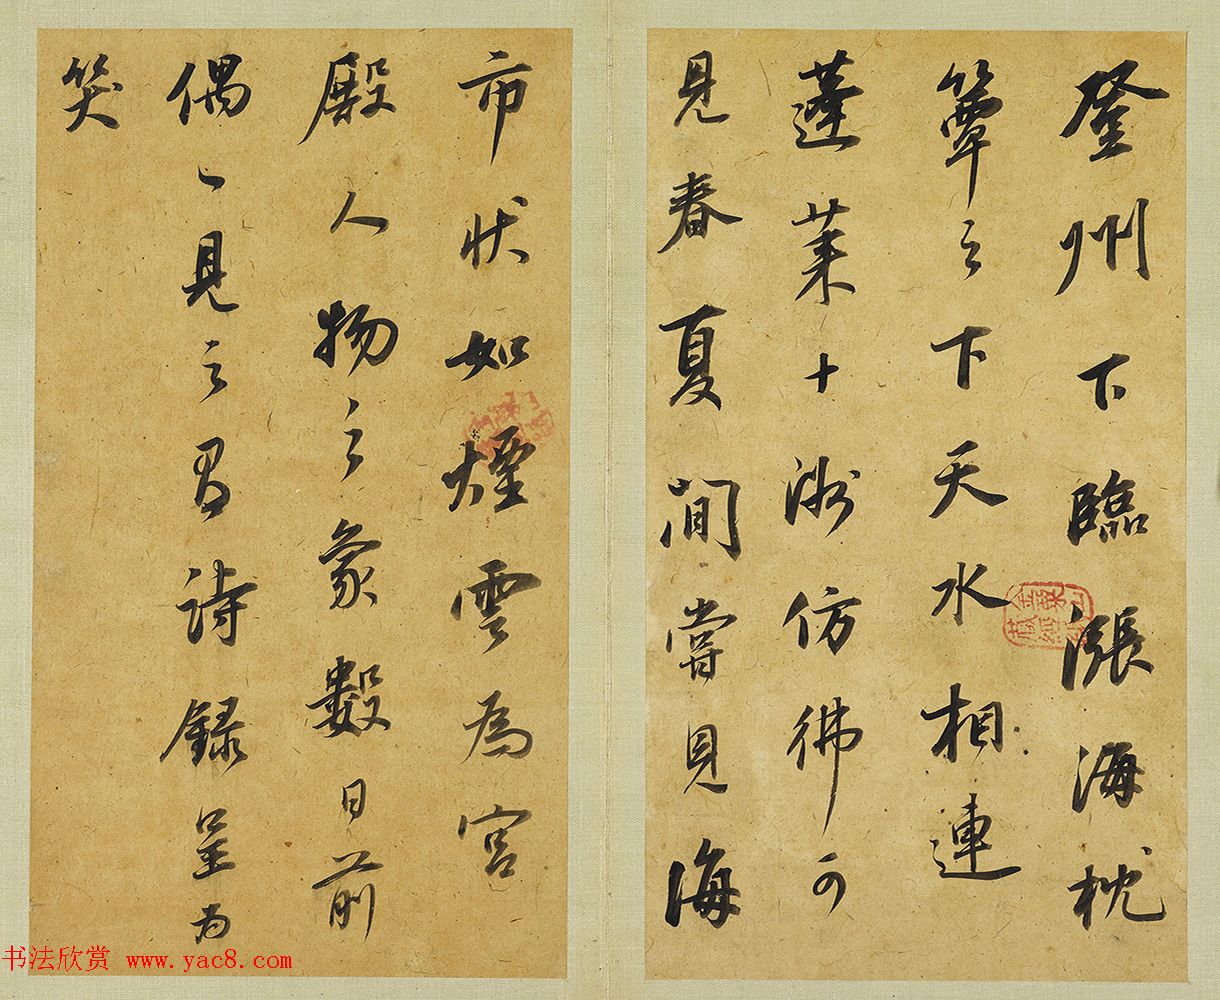 登州下臨漲海枕
簟之下天水相連
蓬萊十洲仿彿可
見春夏間嘗見海
市狀如煙雲為宮
殿人物之象數日前
偶一見之有詩錄呈為
笑
書法欣賞 www.yac8.com